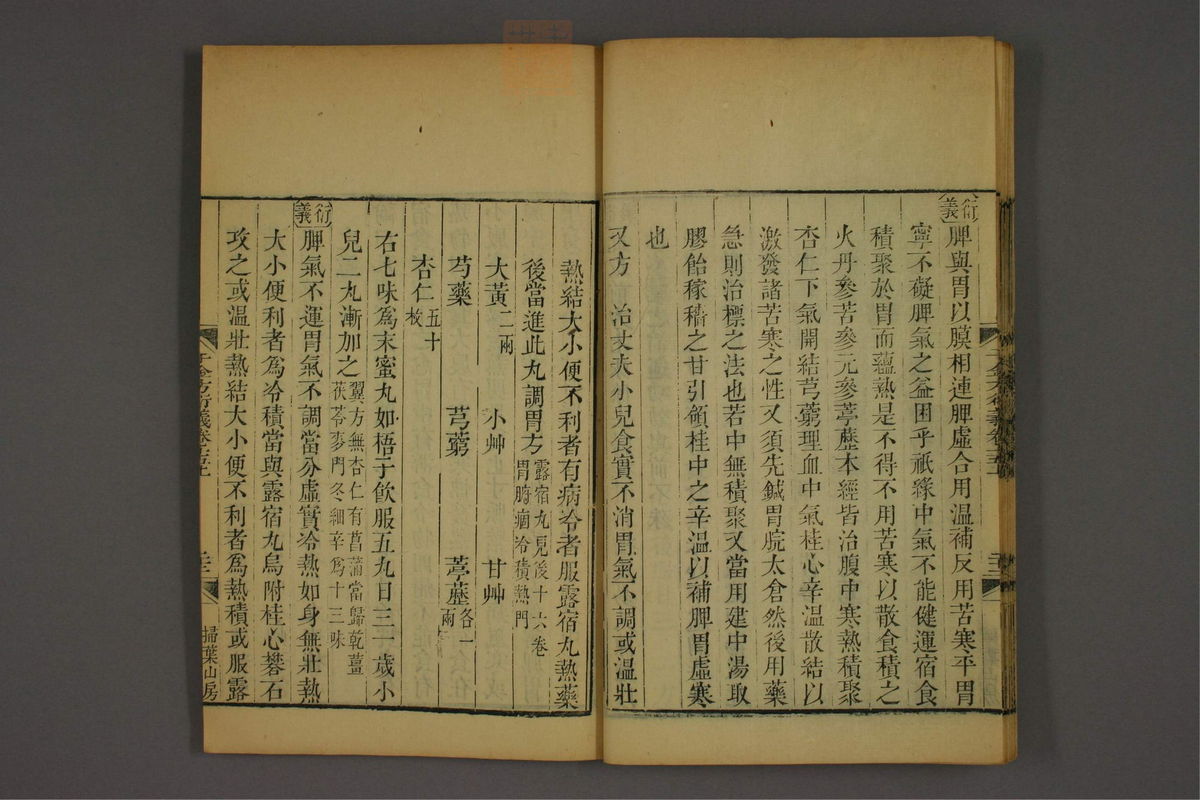 衍義
脾與胃以膜相連脾虛合用溫補反用苦寒平胃
寧不礙脾氣之益困乎祇緣中氣不能健運宿食
積聚於胃而蘊熱是不得不用苦寒以散食積之
火丹參苦參元參葶藶本經皆治腹中寒熱積聚
杏仁下氣開結芎藭理血中氣桂心辛溫散結以
激發諸苦寒之性又須先鍼胃脘太倉然後用藥
急則治標之法也若中無積聚又當用建中湯取
膠飴稼穡之甘引領桂中之辛溫以補脾胃虛寒
也
又方 治丈夫小兒食實不消胃氣不調或溫壯
熱結大小便不利者有病冷者服露宿丸熱藥
後當進此丸調胃方露宿丸見後十六卷胃腑痼冷積熱門
大黃二兩 小艸 甘艸
芍藥 芎藭 葶藶各一兩
杏仁五十枚
右七味為末蜜丸如梧子飲服五丸日三一歲小
兒二丸漸加之翼方無杏仁有菖蒲當歸乾薑茯苓麥門冬細辛為十三味
衍義
脾氣不運胃氣不調當分虛實冷熱如身無壯熱
大小便利者為冷積當與露宿丸烏附桂心礬石
攻之或溫壯熱結大小便不利者為熱積或服露
千金方衍義卷十五
掃葉山房